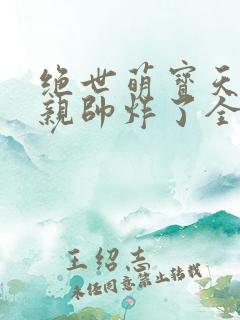 绝世萌寶天
親帥炸了全
王绍志
未经同意禁止转载